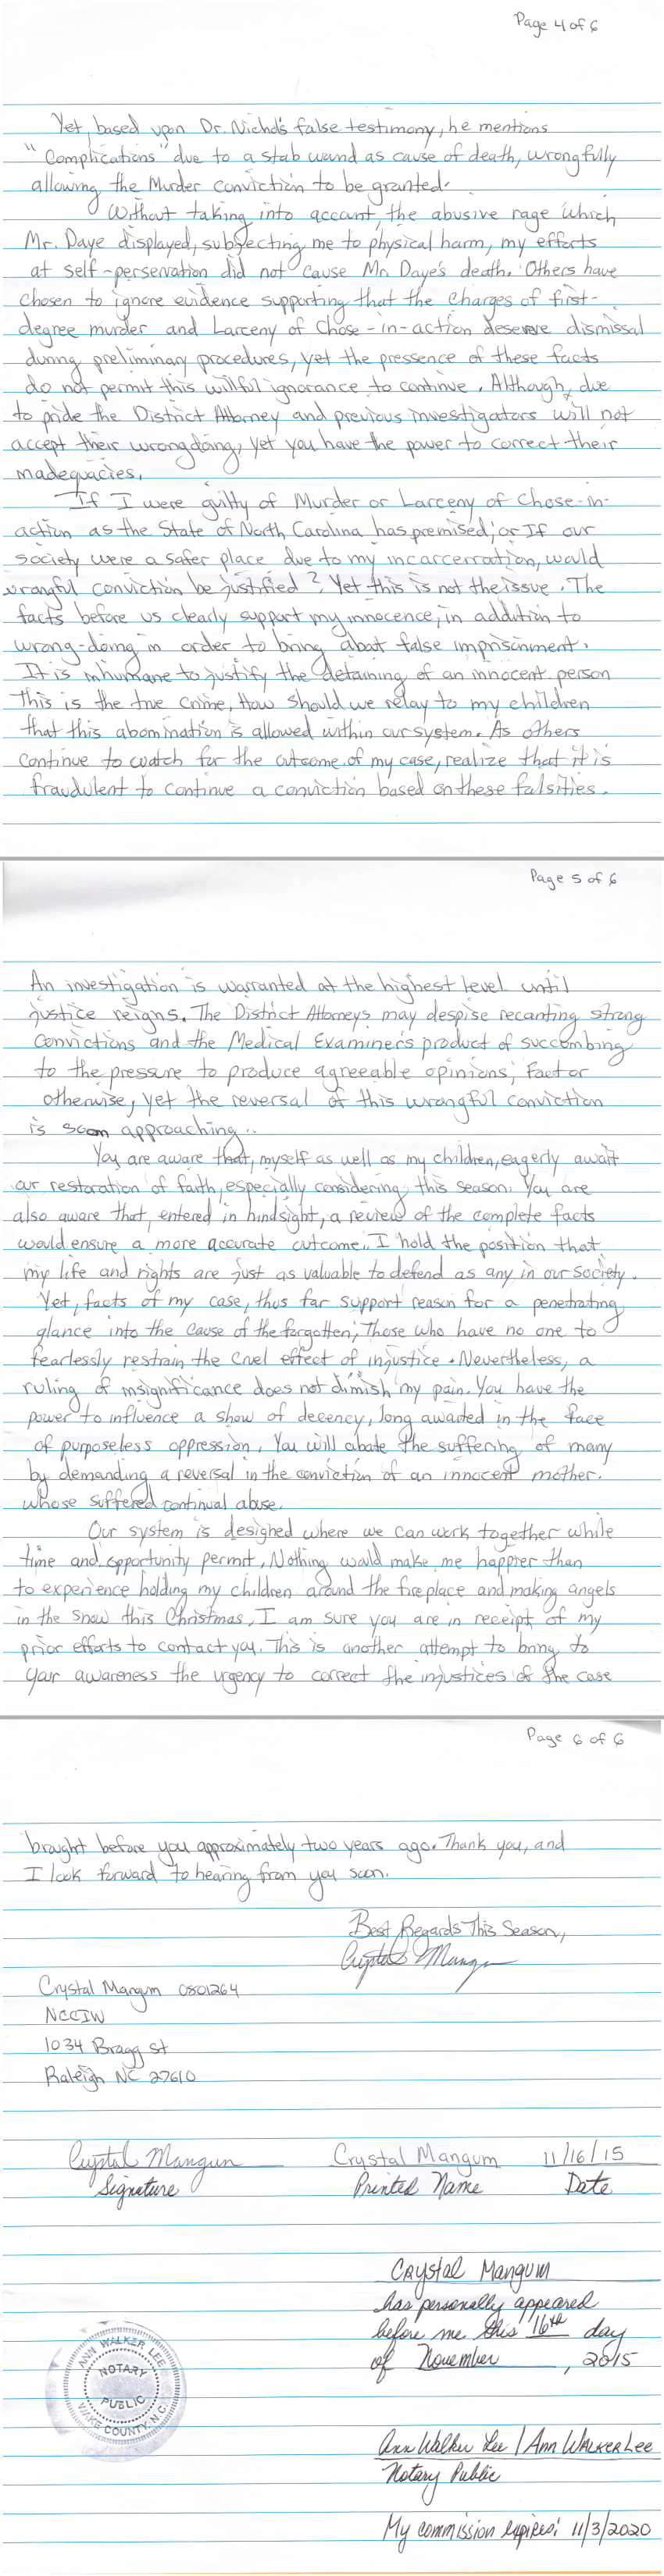 Page 4 of 6
Yet, based upon Dr. Nichols false testimony, he mentions
"Complications" due to a stab wound as cause of death, wrongfully
allowing the Murder conviction to be granted.
Without taking into account, the abusive rage which
Mr. Daye displayed, subjecting me to physical harm, my efforts
at self-perservation did not cause Mr. Daye's death. Others have
chosen to ignore evidence supporting that the charges of first-
degree murder and Larceny of Chose-in-action deserve dismissal
during preliminary procedures, yet the pressence of these facts
do not permit this willful ignorance to continue. Although, due
to pride the District Attorney and previous investigators will not
accept their wrongdoing, yet you have the power to correct their
inadequacies.
If I were guilty of Murder or Larceny of Chose-in-
action as the State of North Carolina has premised; or If our
society were a safer place due to my incarcerration, would
wrongful conviction be justified? Yet this is not the issue. The
facts before us clearly support my innocence; in addition to
wrong-doing in order to bring about false imprisonment.
It is inhumane to justify the detaining of an innocent person
this is the true crime, How should we relay to my children
that this abomination is allowed within our system. As others
continue to watch for the outcome of my case, realize that it is
fraudulent to continue a conviction based on these falsities.
Page 5 of 6
An investigation is warranted at the highest level until
justice reigns. The District Attorneys may despise recanting strong
convictions and the Medical Examiner's product of succombing
to the pressure to produce agreeable opinions; fact or
otherwise, yet the reversal of this wrongful conviction
is soon approaching..
You are aware that, myself as well as my children, eagerly await
our restoration of faith, especially considering this season. You are
also aware that, entered in hindsight, a review of the complete facts
would ensure a more accurate outcome. I hold the position that
my life and rights are just as valuable to defend as any in our society.
Yet, facts of my case, thus far support reason for a penetrating
glance into the cause of the forgotten; Those who have no one to
fearlessly restrain the cruel effect of injustice. Nevertheless, a
ruling of insignificance does not dimish my pain. You have the
power to influence a show of decency, long awaited in the face
of purposeless oppression. You will abate the suffering of many
by demanding a reversal in the conviction of an innocent mother.
whose suffered continual abuse.
Our system is designed where we can work together while
time and opportunity permit. Nothing would make me happier than
to experience holding my children around the fireplace and making angels
in the snow this Christmas. I am sure you are in receipt of my
prior efforts to contact you. This is another attempt to bring to
your awareness the urgency to correct the injustices of the case
Page 6 of 6
brought before you approximately two years ago. Thank you, and
I look forward to hearing from you soon.
Best Regards This Season,
Crystal Mangum
Crystal Mangum 0801264
NCCIW
1034 Bragg St
Raleigh NC 27610
Crystal Mangum Crystal Mangum 11/16/15
Signature Printed Name Date
Crystal Mangum
has personally appeared
before me this 16th day
of November, 2015
ANN WALKER LEE
NOTARY
PUBLIC
WAKE COUNTY, N.C.
Ann Walker Lee / Ann Walker Lee
Notary Public
My commission expires: 11/3/2020